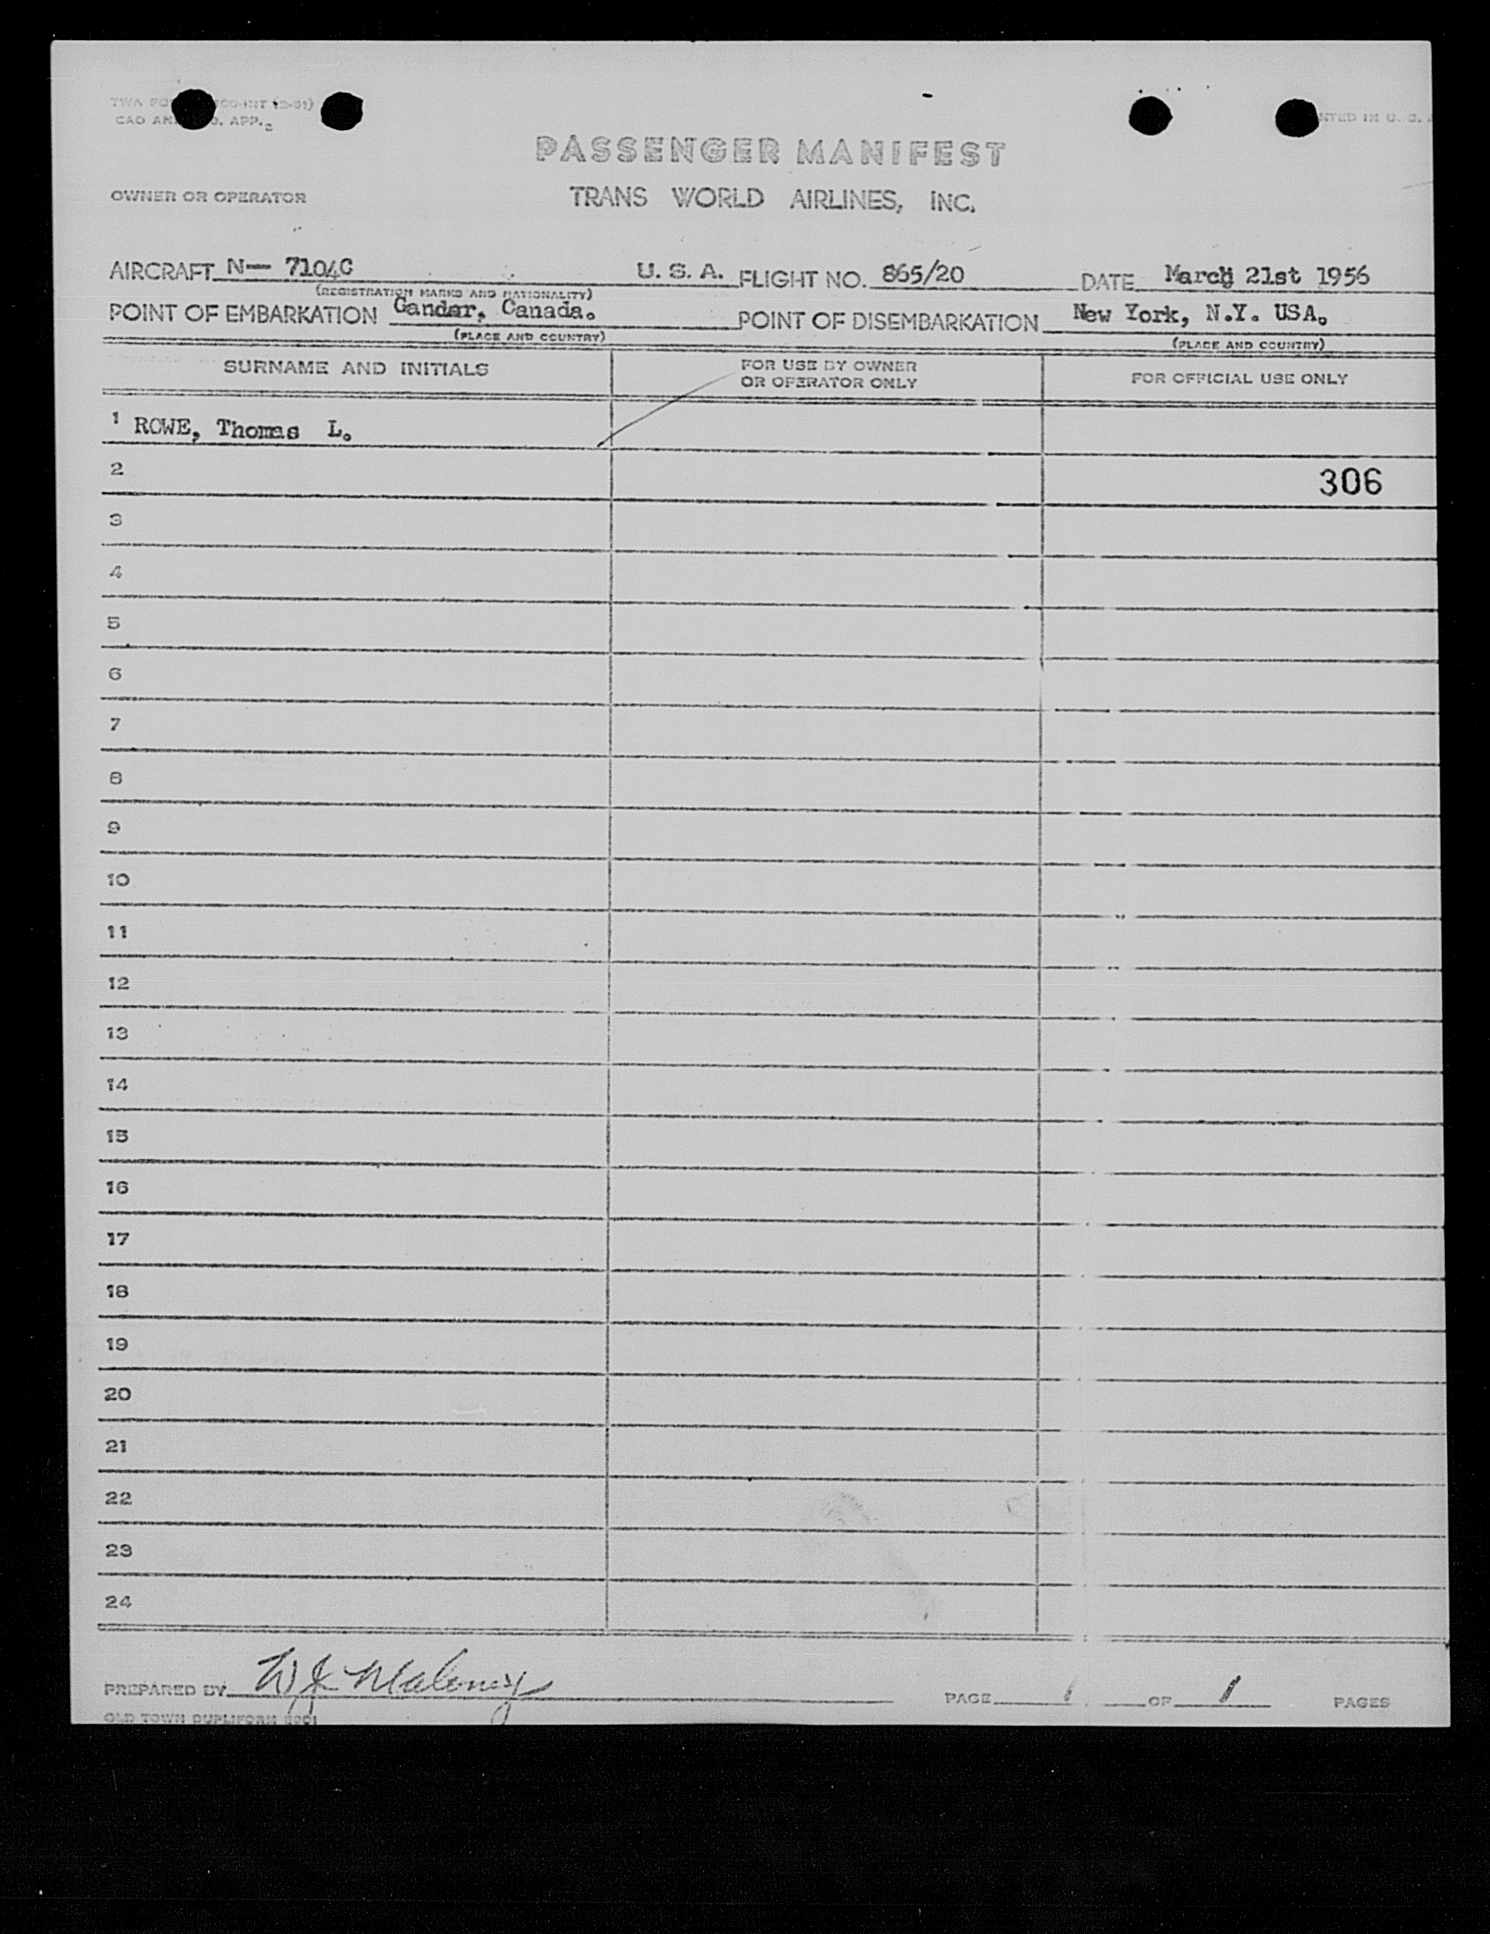 CAO AN
APP.
PASSENGER MANIFEST
OWNER OR OPERATOR TRANS WORLD AIRLINES, INC.
AIRCRAFT N— 7104C U. S. A. FLIGHT NO. 865/20 DATE March 21st 1956
(REGISTRATION MARKS AND NATIONALITY)
POINT OF EMBARKATION Gander, Canada. POINT OF DISEMBARKATION New York, N.Y. USA.
(PLACE AND COUNTRY) (PLACE AND COUNTRY)
SURNAME AND INITIALS FOR USE BY OWNER OR OPERATOR ONLY FOR OFFICIAL USE ONLY
1 ROWE, Thomas L.
2 306
3
4
5
6
7
8
9
10
11
12
13
14
15
16
17
18
19
20
21
22
23
24
PREPARED BY W J Maloney PAGE 1 OF 1 PAGES
OLD TOWN DUPLIFORM